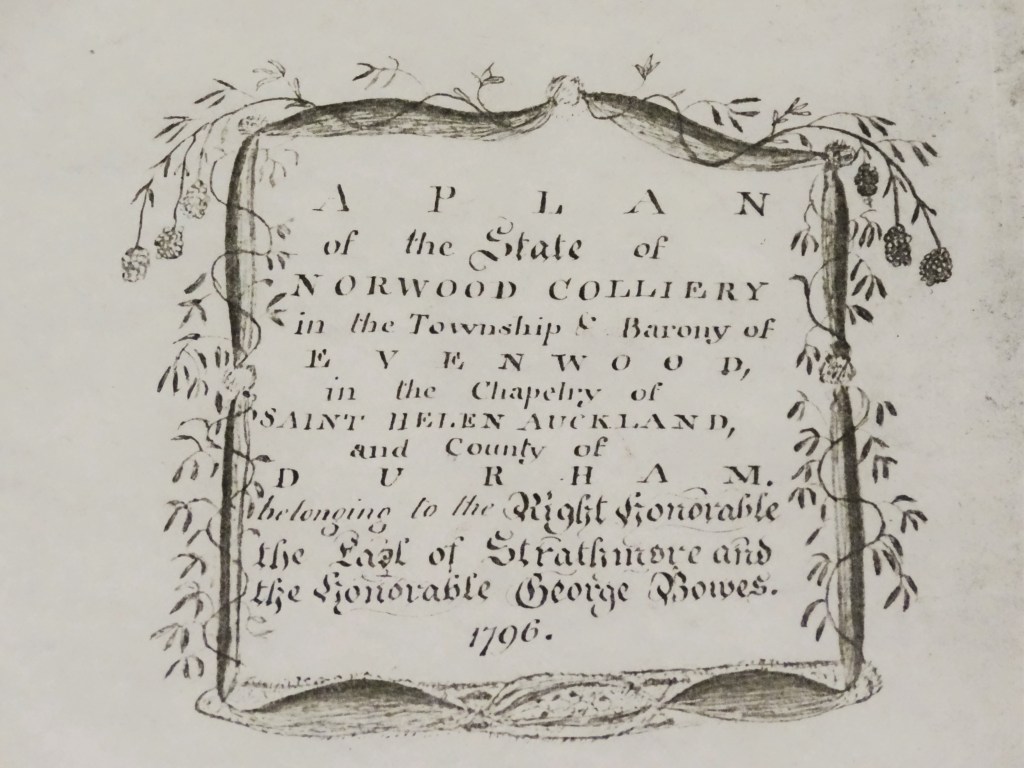 A PLAN
of the State of
NORWOOD COLLIERY
in the Township & Barony of
EVENWOOD,
in the Chapelry of
SAINT HELEN AUCKLAND,
and County of
DURHAM.
belonging to the Right Honorable
the Earl of Strathmore and
the Honorable George Bowes.
1796.